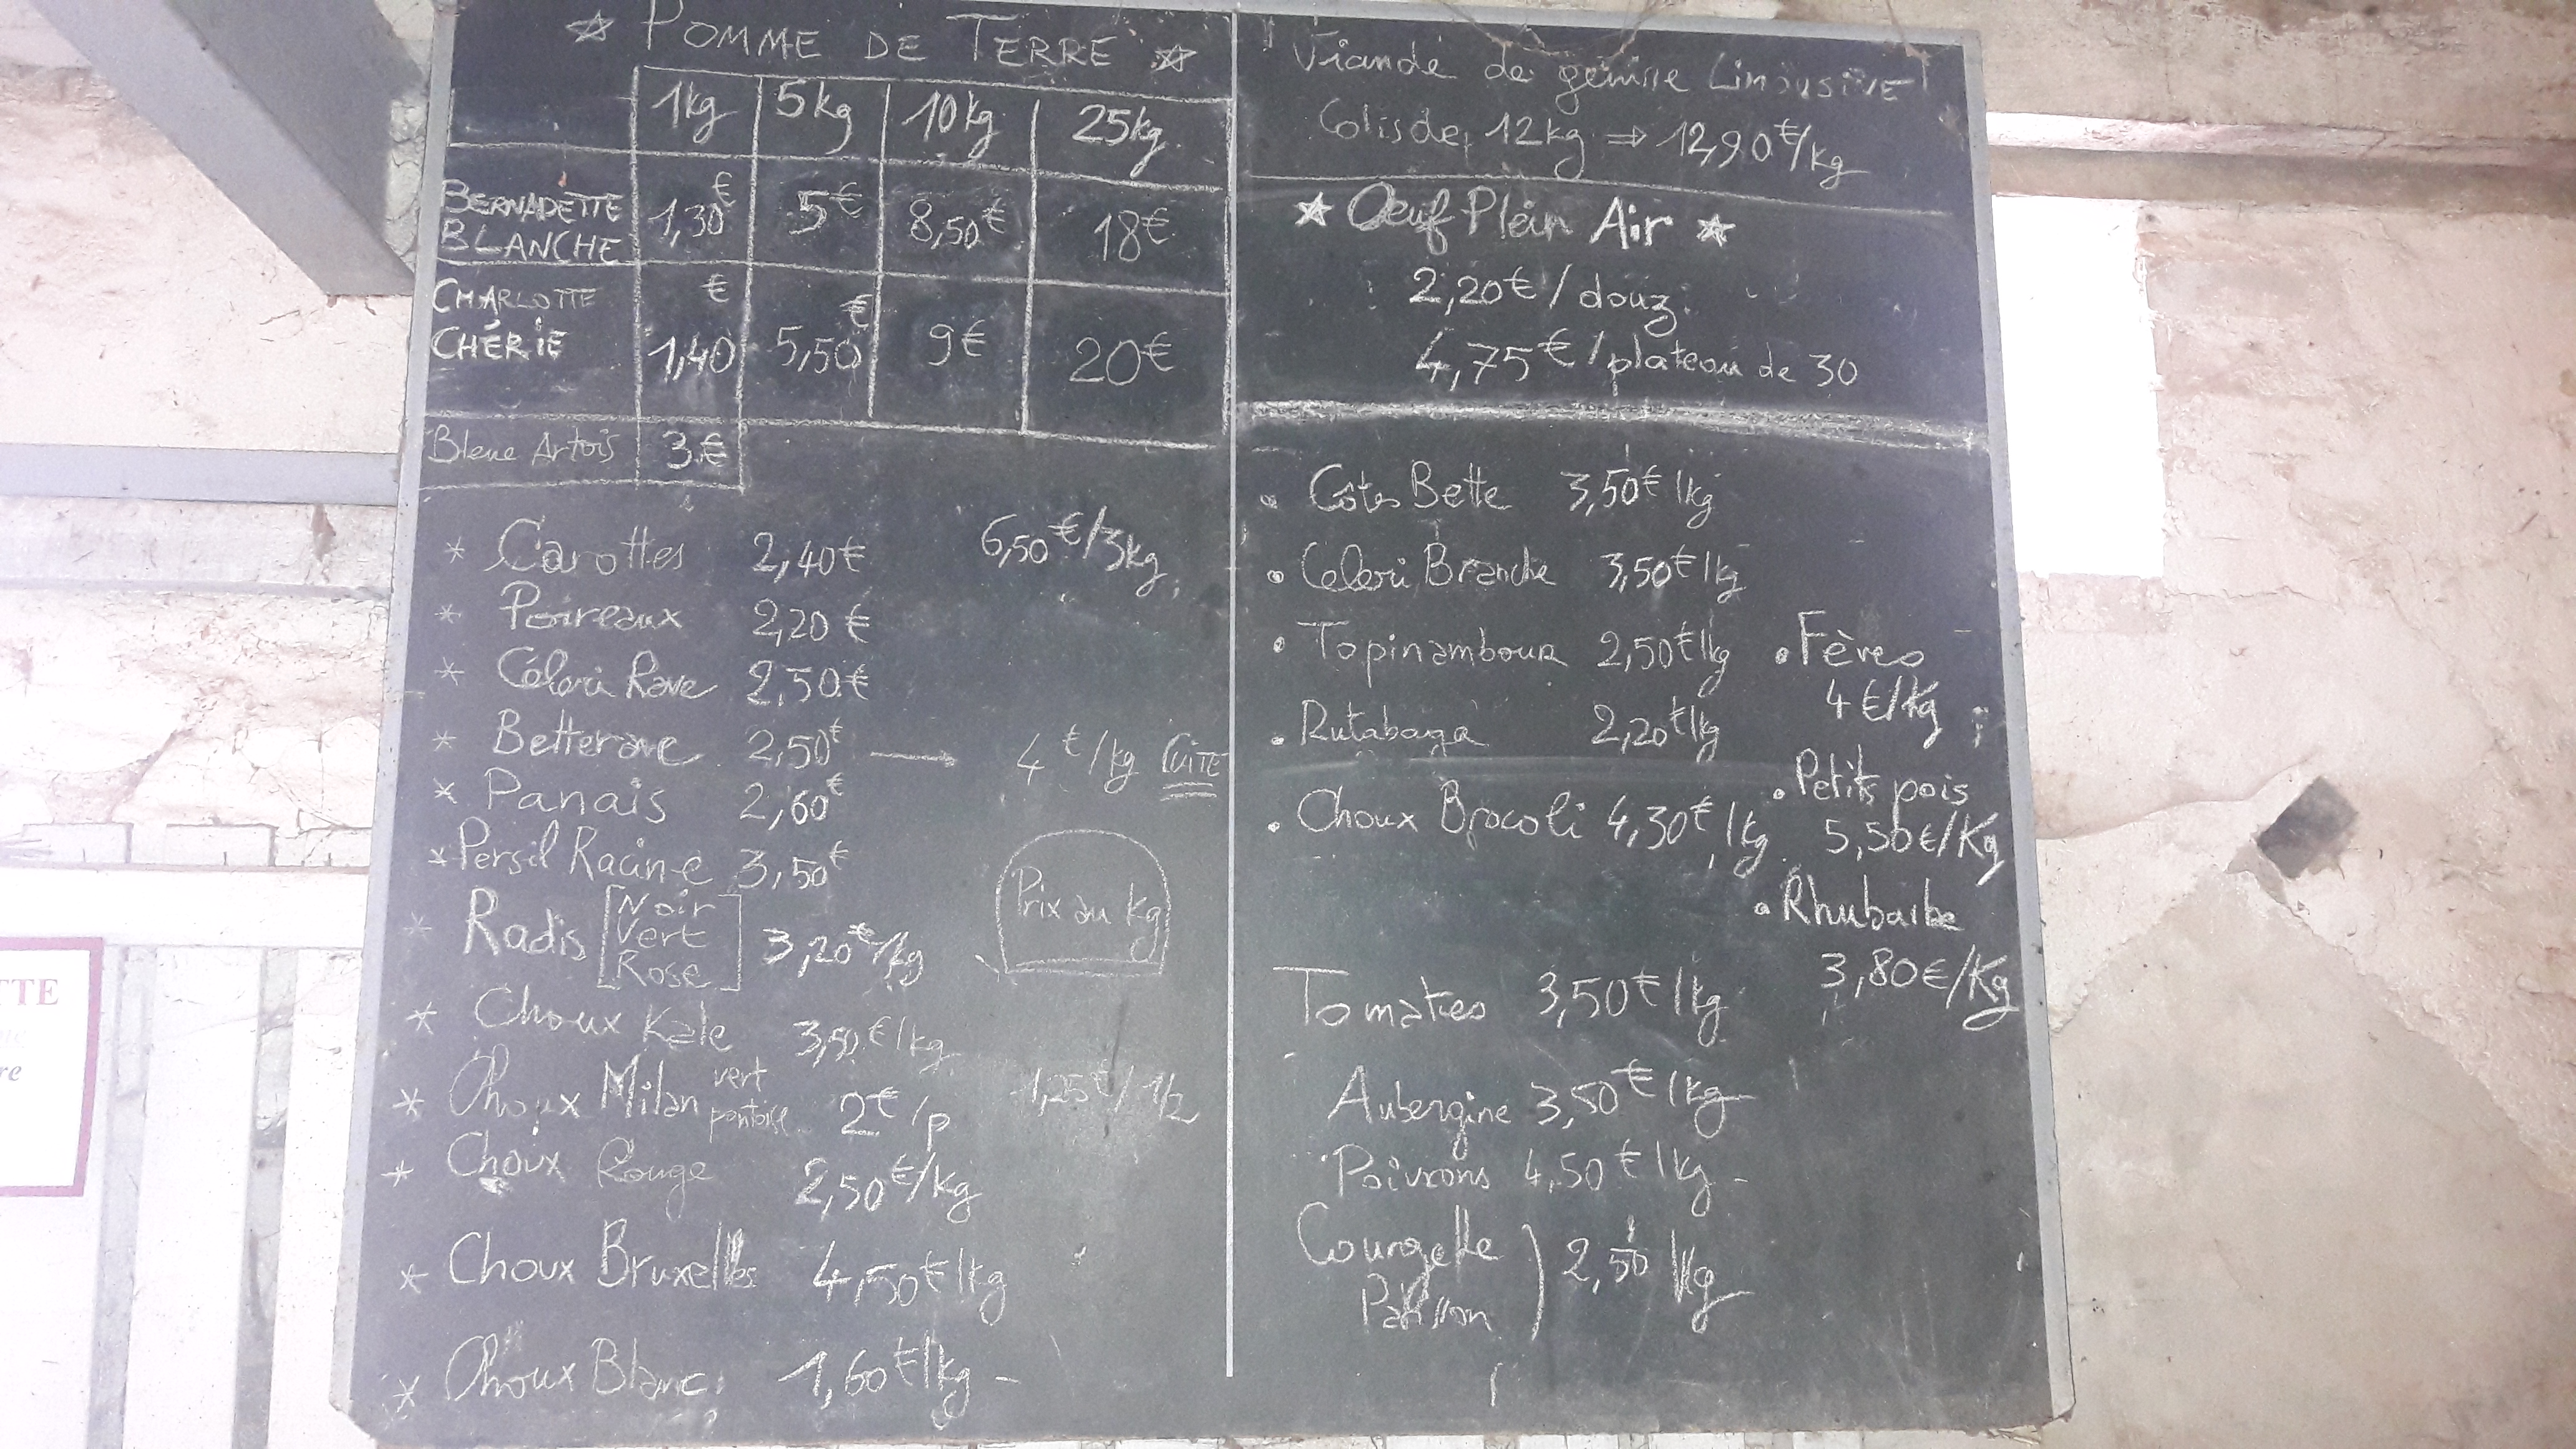 ☆ POMME DE TERRE ☆
1kg 5kg 10kg 25kg
BERNADETTE BLANCHE 1,30€ 5€ 8,50€ 18€
CHARLOTTE CHÉRIE 1,40€ 5,50€ 9€ 20€
Bleue Artois 3€
* Carottes 2,40€ 6,50€/3kg
* Poireaux 2,20€
* Céleri Rave 2,50€
* Betterave 2,50€ → 4€/kg CUITE
* Panais 2,60€
* Persil Racine 3,50€
Prix au kg
* Radis [Noir Vert Rose] 3,20€/kg
* Choux Kale 3,50€/kg
* Choux Milan vert pontoise 2€/p 1,25€/ 1/2
* Choux Rouge 2,50€/kg
* Choux Bruxelles 4,50€/kg
* Choux Blanc 1,60€/kg
! Viande de génisse Limousine !
Colis de 12kg ⇒ 12,90€/kg
★ Œuf Plein Air ★
2,20€/douz.
4,75€/plateau de 30
• Côtes Bette 3,50€/kg
• Celeri Branche 3,50€/kg
• Topinambour 2,50€/kg
• Rutabaga 2,20€/kg
• Choux Brocoli 4,30€/kg
• Fèves
4€/Kg
• Petits pois
5,50€/Kg
• Rhubarbe
3,80€/Kg
Tomates 3,50€/kg
Aubergine 3,50€/kg
Poivrons 4,50€/kg
Courgette
Patisson ) 2,50 /kg
TTE
re